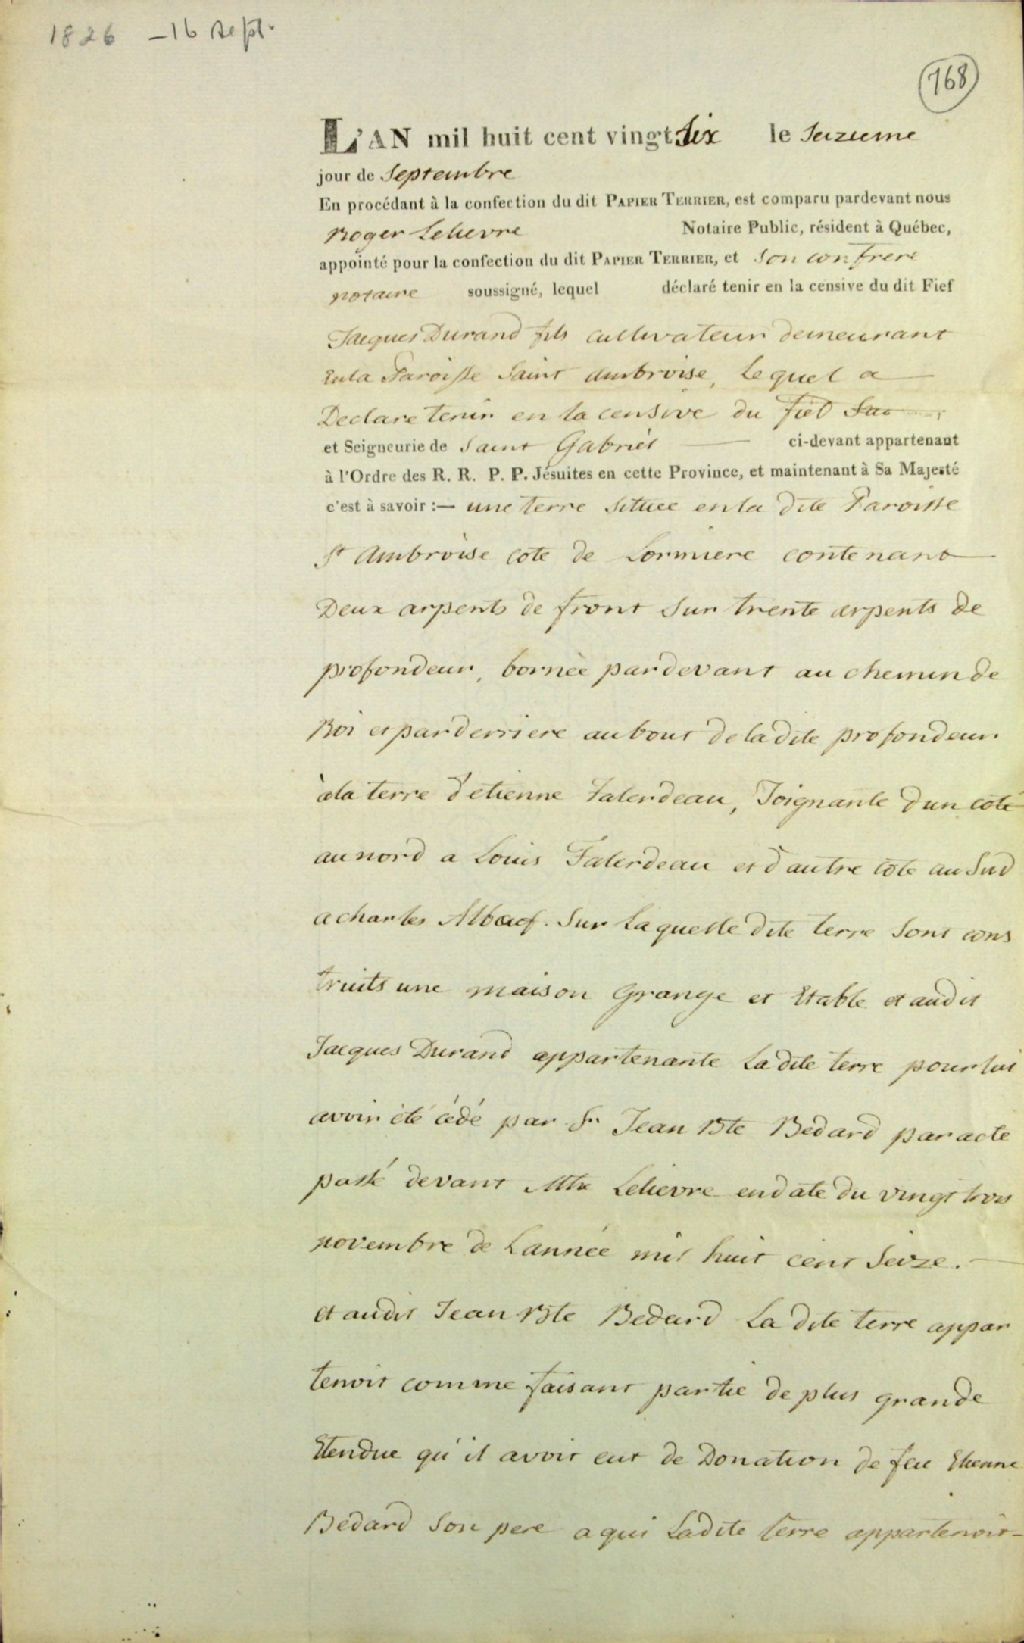 1826 – 16 Sept.
768
L'AN mil huit cent vingt Six le Seizieme
jour de Septembre
En procédant à la confection du dit PAPIER TERRIER, est comparu pardevant nous
Roger Lelievre Notaire Public, résident à Québec,
appointé pour la confection du dit PAPIER TERRIER, et son confrere
notaire soussigné, lequel déclaré tenir en la censive du dit Fief
Jacques Durand fils cultivateur demeurant
En la Paroisse Saint Ambroise, Lequel a
Declare tenir en la censive du fief
et Seigneurie de Saint Gabriel ci-devant appartenant
à l'Ordre des R. R. P. P. Jésuites en cette Province, et maintenant à Sa Majesté
c'est à savoir :— une terre située en la dite Paroisse
St Ambroise cote de Lormiere contenant
Deux arpents de front Sur trente arpents de
profondeur, bornée pardevant au chemin de
Roi et par derriere au bout de la dite profondeur
à la terre d'etienne falerdeau, Joignante d'un coté
au nord a Louis Falerdeau et d'autre coté au Sud
a charles Alboeuf. Sur laquelle dite terre Sont cons
truits une maison Grange et Etable et audit
Jacques Durand appartenante La dite terre pour lui
avoir été cédé par Sr Jean Bte Bedard par acte
passé devant Mtre Lelievre en date du vingt trois
novembre de L'année mil huit cent Seize.
et audit Jean Bte Bedard La dite terre appar
tenoit comme faisant partie de plus grande
Etendue qu'il avoit eut de Donation de feu Etienne
Bedard Son pere a qui Ladite terre appartenoit